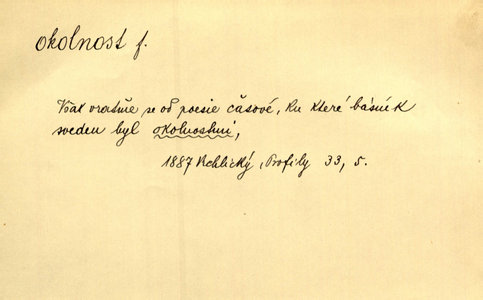 okolnost f.
Však vraťme se od poesie časové, ku které básník
sveden byl okolnostmi,
1887 Vrchlický, Profily 33, 5.